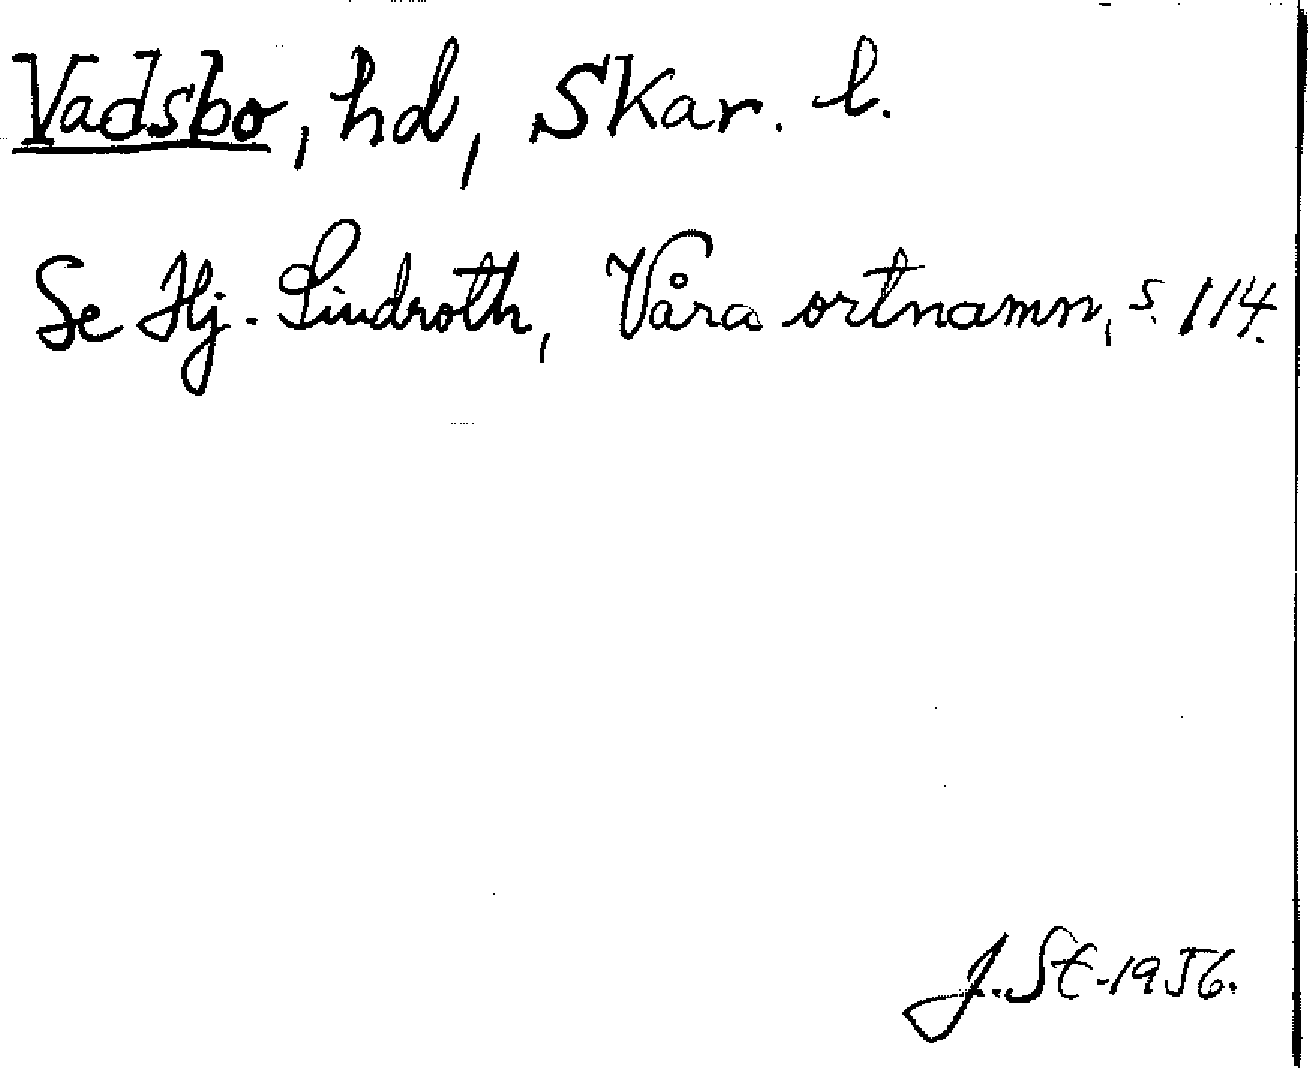 Vadsbo, hd, Skar. l.
Se Hj. Lindroth, Våra ortnamn, s. 114.
J. St. 1956.